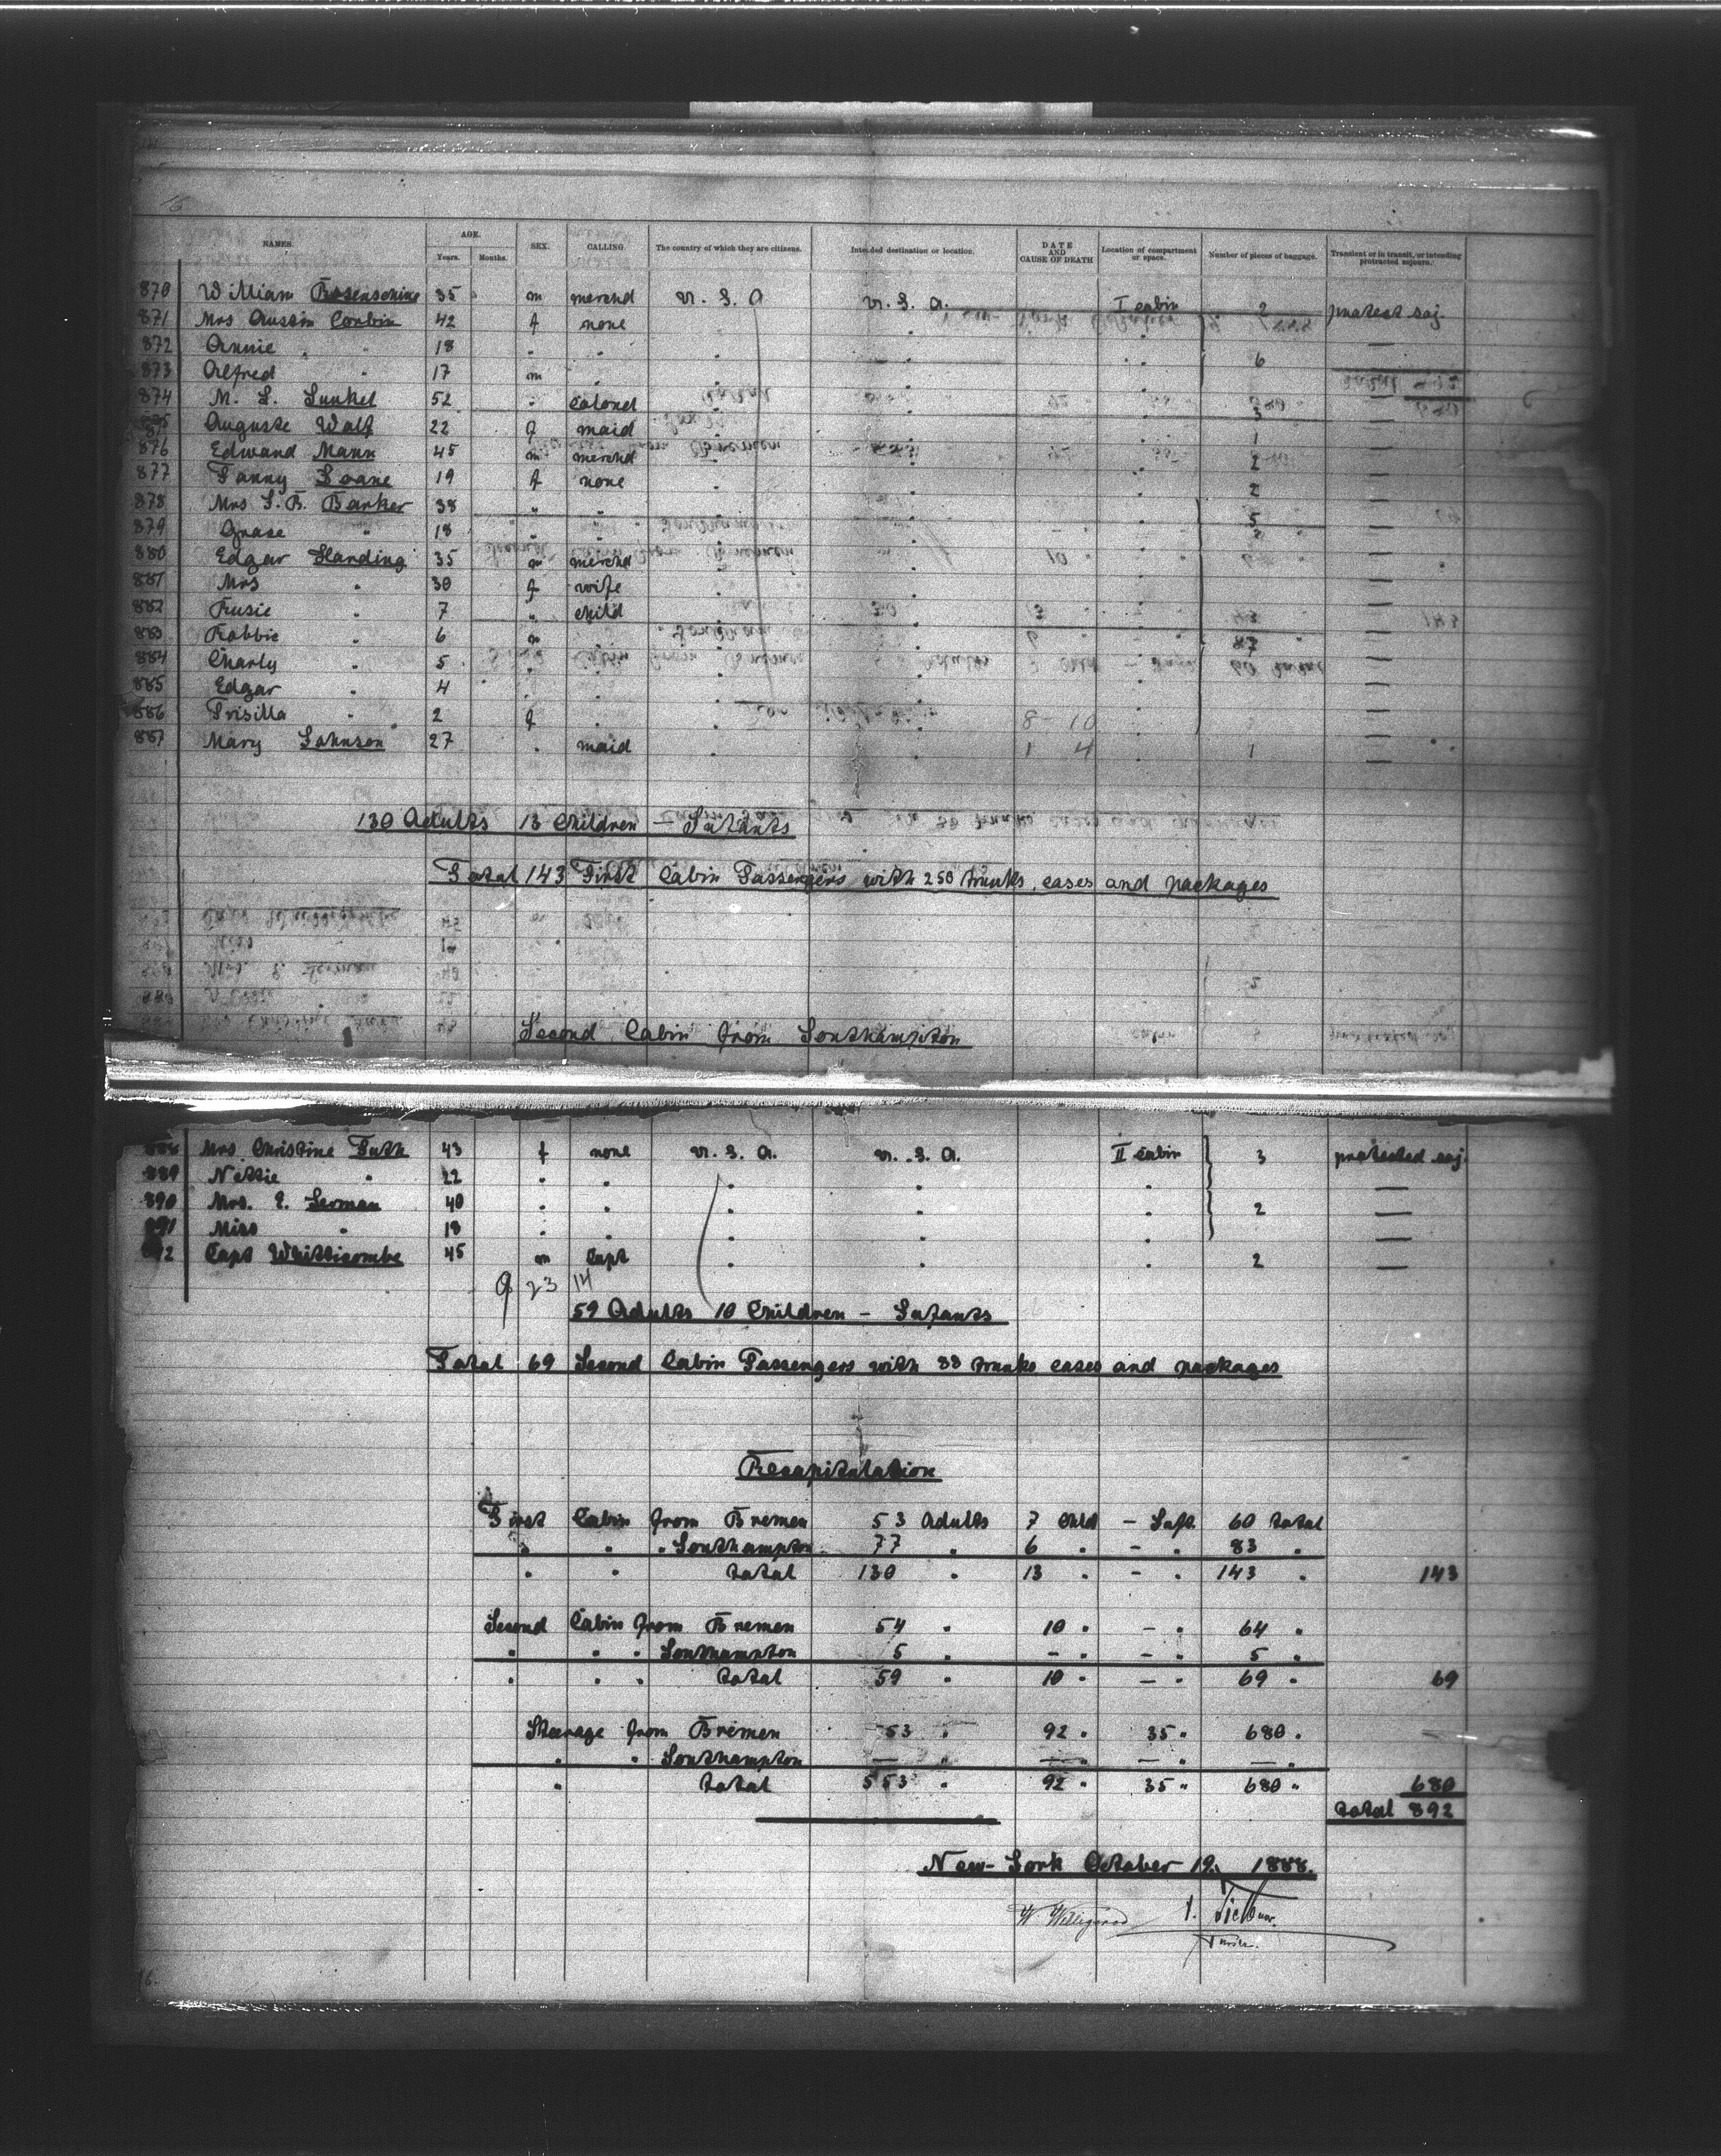 15
NAMES. AGE. Years. Months. SEX. CALLING. The country of which they are citizens. Intended destination or location. DATE AND CAUSE OF DEATH Location of compartment or space. Number of pieces of baggage. Transient or in transit, or intending protracted sojourn.
870 William 35 m merchd U. S. A U. S. A. I cabin 2 protect soj.
871 Mrs Austin Corbin 42 f none " "
872 Annie " " 18 " " " " " 6 —
873 Alfred " 17 m " " " "
874 M. L. 52 " " " " 3 —
875 Auguste Wolf 22 f maid " " " 1 —
876 Edward Mann 45 m merchd " " " 2 —
877 Fanny 19 f none " " " 2 —
878 Mrs S. B. Barker 38 " " " " " 5 —
879 Grase " 18 " " " " " —
880 Edgar Harding 35 m merchd " " " —
881 Mrs " 30 f wife " " " —
882 " 7 " child " " " —
883 Robbie " 6 m " " " " —
884 Charly " 5 " " " " " —
885 Edgar " 4 " " " " " —
886 Prisilla " 2 f " " " " —
887 Mary Johnson 27 " maid " " " 1 —
8 - 10
1 4
130 Adults 13 Children — Infants
Total 143 First Cabin Passengers with 250 trunks, cases and packages
Second Cabin from Southampton
888 Mrs. Christine 43 f none U. S. A. U. S. A. II cabin 3 protected soj.
889 Nettie " 22 " " " " " —
890 Mrs. E. Lerman 40 " " " " " 2 —
891 Miss " 18 " " " " " —
892 Capt Whitticombe 45 m Capt " " " 2 —
9 23 14
59 Adults 10 Children — Infants
Total 69 Second Cabin Passengers with 33 trunks cases and packages
Recapitulation
First Cabin from Bremen 53 Adults 7 Child — Inft 60 total
" " " Southampton 77 " 6 " — " 83 "
" " total 130 " 13 " — " 143 " 143
Second Cabin from Bremen 54 " 10 " — " 64 "
" " " Southampton 5 " — " — " 5 "
" " " total 59 " 10 " — " 69 " 69
Steerage from Bremen 553 " 92 " 35 " 680 "
" " Southampton — " — " — " — "
" total 553 " 92 " 35 " 680 " 680
total 892
New-York October 19. 1888.
W. Willigerod
16.